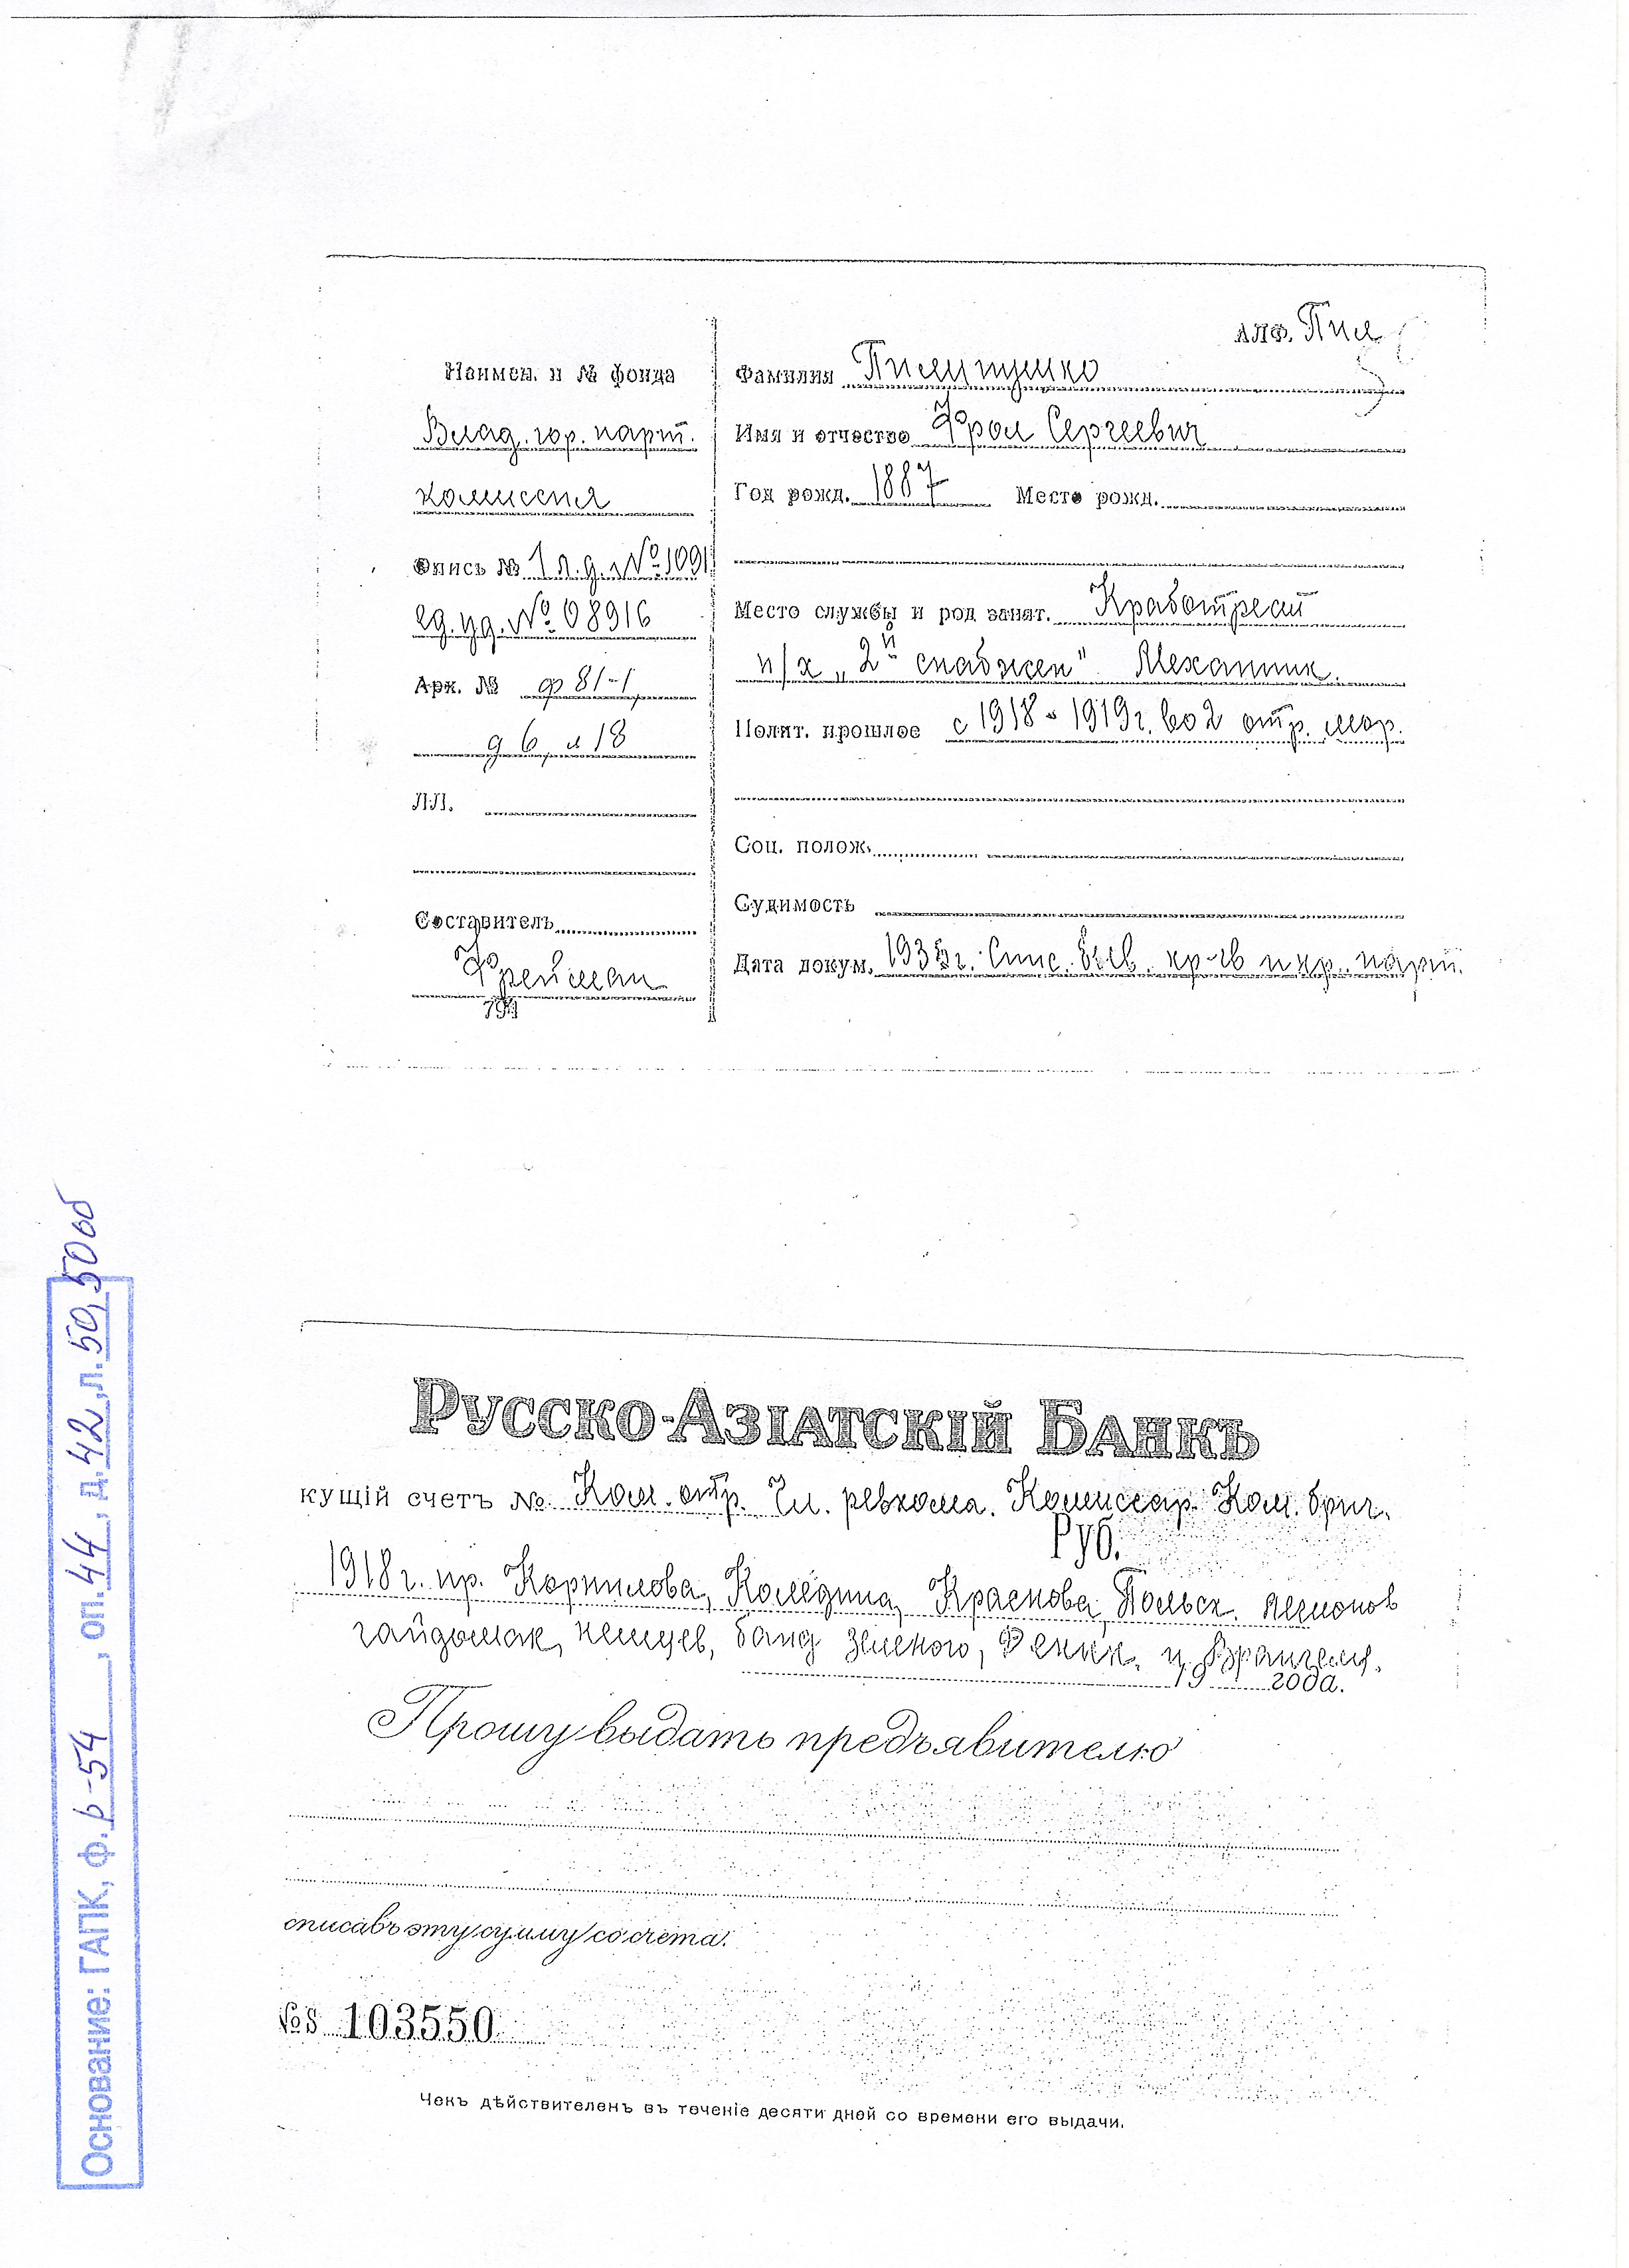 АЛФ. Пил
Наимен. и № фонда
Влад. гор. парт.
комиссия
Опись № 1 л.д. №1091
ед.уд. № 08916
Арх. № ф 81-1
д 6, л 18
ЛЛ.
Составитель
Фрейман
Фамилия Пилипушко
Имя и отчество Фрол Сергеевич
Год рожд. 1887 Место рожд.
Место службы и род занят. Работрест
п/х „2й снабжен" Механик.
Полит. прошлое с 1918 - 1919г. во 2 отр. мор.
Соц. полож.
Судимость
Дата докум. 1935г. Спис. быв. кр-гв и кр. парт.
Русско-Азіатскій Банкъ
кущій счетъ № Ком. отр. Чл. ревкома. Комиссар. Ком. бриг.
Руб.
1918 г. пр. Корнилова, Коледина, Краснова, Польск. легионов
гайдамак, немцев, банд Зеленого, Деник. и Врангеля.
19 года.
Прошу выдать предъявителю
списавъ эту сумму со счета.
№ S 103550
Чекъ дѣйствителенъ въ теченіе десяти дней со времени его выдачи.
Основание: ГАПК, ф. р-54, оп. 44, д. 42, л. 50, 50 об